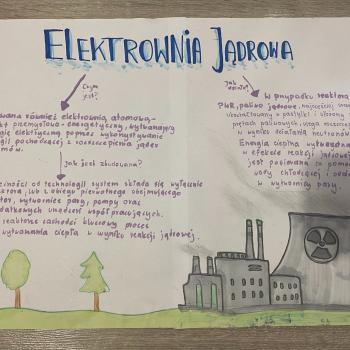 ELEKTROWNIA JĄDROWA
Czym
jest?
Jak
działa?
wana również elektrownią atomową-
kt przemysłowo-energetyczny, wytwarzający
gię elektryczną poprzez wykorzystanie
gii pochodzącej z rozszczepienia jąder
mów.
Jak jest zbudowana?
żności od technologii system składa się wyłącznie
z lub z obiegu pierwotnego obejmującego
tor, wytwornice pary, pompy oraz
datkowych urządzeń współpracujących.
reaktorze zachodzi kluczowy proces
wytwarzania ciepła w wyniku reakcji jądrowej.
W przypadku reaktora
PWR, paliwo jądrowe, najczęściej uran
w pastylki i
prętach paliwowych, ulega
w wyniku działania neutronów
Energia cieplna wytwarzana
w efekcie reakcji jądrowej
jest pobierana za pomocą
wody chłodzącej i
w wytwornicy pary.